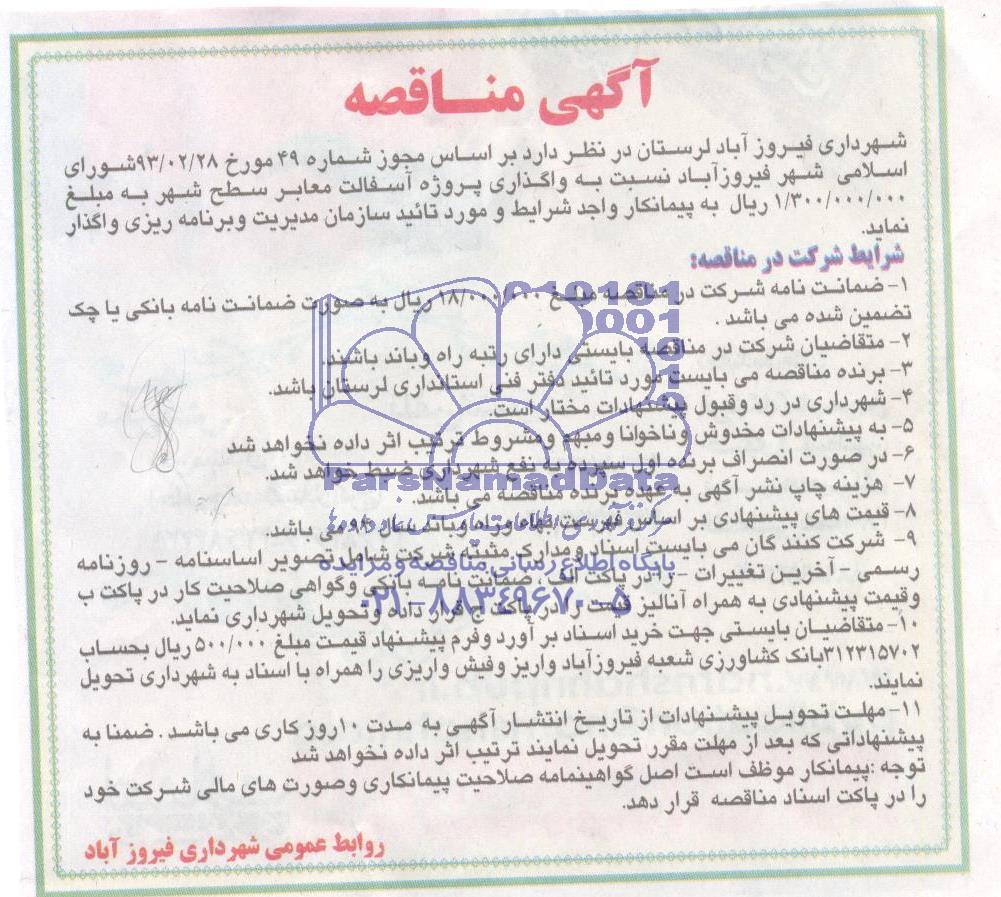 آگهی مناقصه
شهرداری فیروز آباد لرستان در نظر دارد بر اساس مجوز شماره ۴۹ مورخ ۹۳/۰۲/۲۸شورای
اسلامی شهر فیروزآباد نسبت به واگذاری پروژه آسفالت معابر سطح شهر به مبلغ
۱/۳۰۰/۰۰۰/۰۰۰ ریال به پیمانکار واجد شرایط و مورد تائید سازمان مدیریت وبرنامه ریزی واگذار
نماید.
شرایط شرکت در مناقصه:
۱- ضمانت نامه شرکت در مناقصه مبلغ ۱۸/۰۰۰/۰۰۰ ریال به صورت ضمانت نامه بانکی یا چک
تضمین شده می باشد .
۲- متقاضیان شرکت در مناقصه بایستی دارای رتبه راه وباند باشند.
۳- برنده مناقصه می بایست مورد تائید دفتر فنی استانداری لرستان باشد.
۴- شهرداری در رد وقبول پیشنهادات مختار است.
۵- به پیشنهادات مخدوش وناخوانا ومبهم ومشروط ترتیب اثر داده نخواهد شد
۶- در صورت انصراف برنده اول سپرده به نفع شهرداری ضبط خواهد شد.
۷- هزینه چاپ نشر آگهی به عهده برنده مناقصه می باشد.
۸- قیمت های پیشنهادی بر اساس فهرست بهاء راه وباند سال می باشد.
۹- شرکت کنند گان می بایست اسناد ومدارک مثبته شرکت شامل تصویر اساسنامه - روزنامه
رسمی - آخرین تغییرات - را در پاکت الف ، ضمانت نامه بانکی وگواهی صلاحیت کار در پاکت ب
وقیمت پیشنهادی به همراه آنالیز قیمت را در پاکت ج قرار داده وتحویل شهرداری نماید.
۱۰- متقاضیان بایستی جهت خرید اسناد بر آورد وفرم پیشنهاد قیمت مبلغ ۵۰۰/۰۰۰ ریال بحساب
۳۱۲۳۱۵۷۰۲بانک کشاورزی شعبه فیروزآباد واریز وفیش واریزی را همراه با اسناد به شهرداری تحویل
نمایند.
۱۱- مهلت تحویل پیشنهادات از تاریخ انتشار آگهی به مدت ۱۰روز کاری می باشد . ضمنا به
پیشنهاداتی که بعد از مهلت مقرر تحویل نمایند ترتیب اثر داده نخواهد شد
توجه :پیمانکار موظف است اصل گواهینمامه صلاحیت پیمانکاری وصورت های مالی شرکت خود
را در پاکت اسناد مناقصه قرار دهد.
روابط عمومی شهرداری فیروز آباد
ParsNamadData
پایگاه اطلاع رسانی مناقصه و مزایده
۰۲۱-۸۸۳۴۹۶۷۰-۵